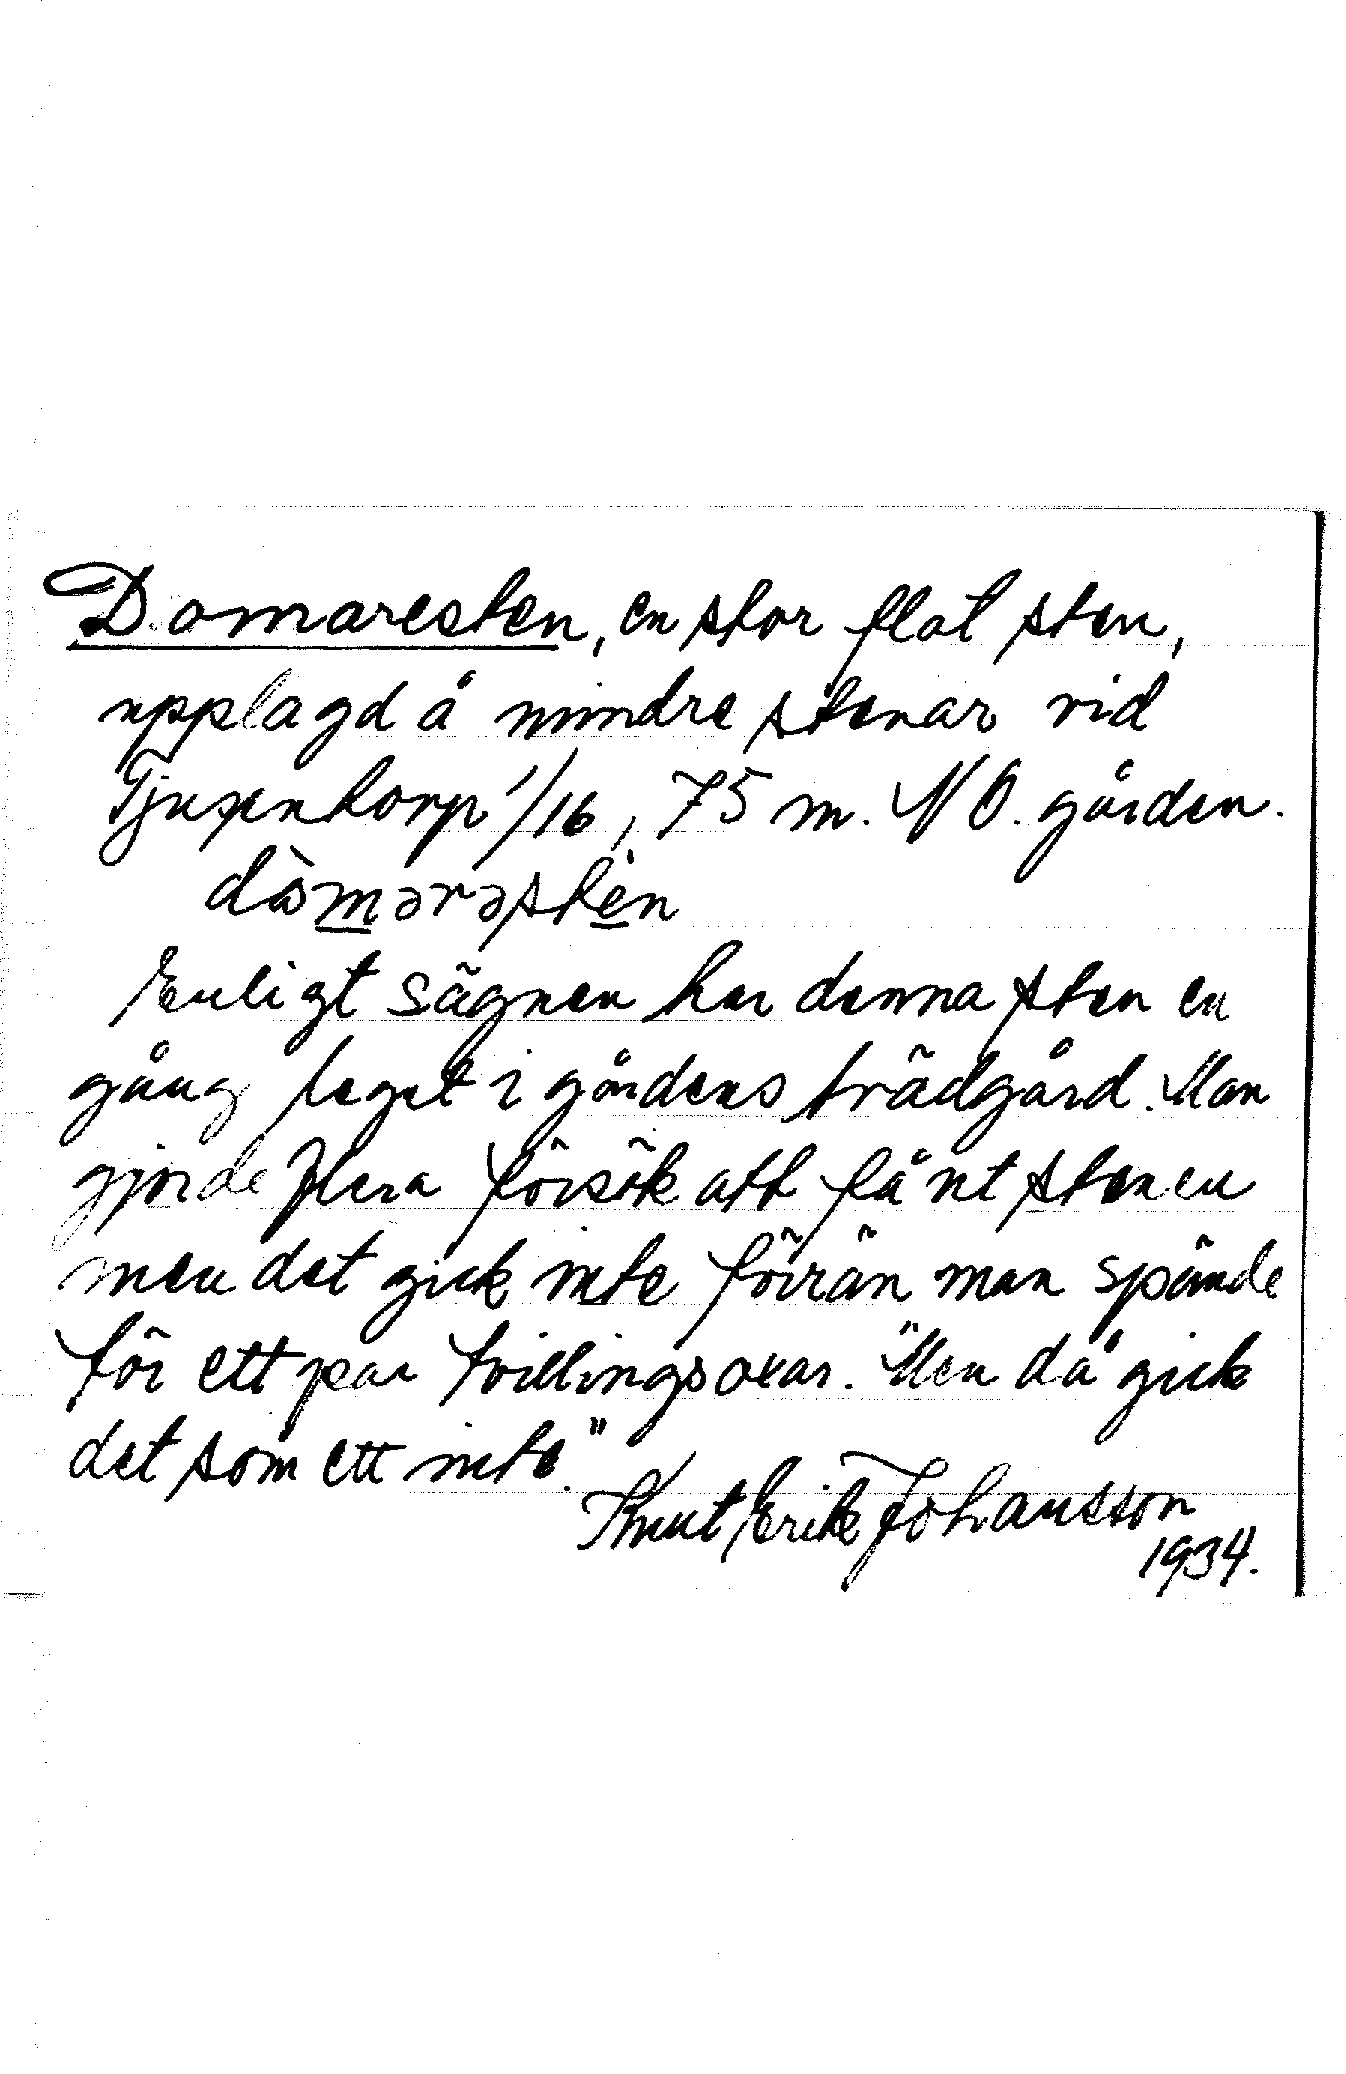 Domaresten, en stor flat sten,
upplagd å mindre stenar vid
Tjuxentorp 1/16, 75 m. NO. gården.
dò̀mərəstèn
Enligt sägnen har denna sten en
gång legat i gårdens trädgård. Man
gjorde flera försök att få ut stenen
men det gick inte förrän man spände
för ett par tvillingsoxar. "Men då gick
det som ett inte."
Knut Erik Johansson
1934.